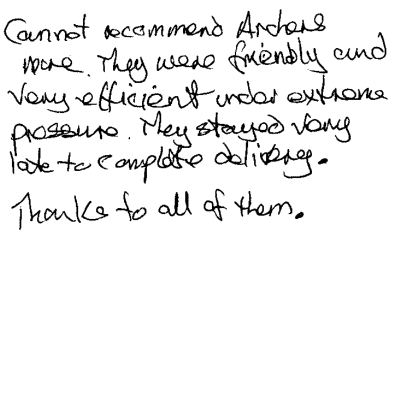 Cannot recommend Archers
more. They were friendly and
very efficient under extreme
pressure. They stayed very
late to complete delivery.
Thanks to all of them.